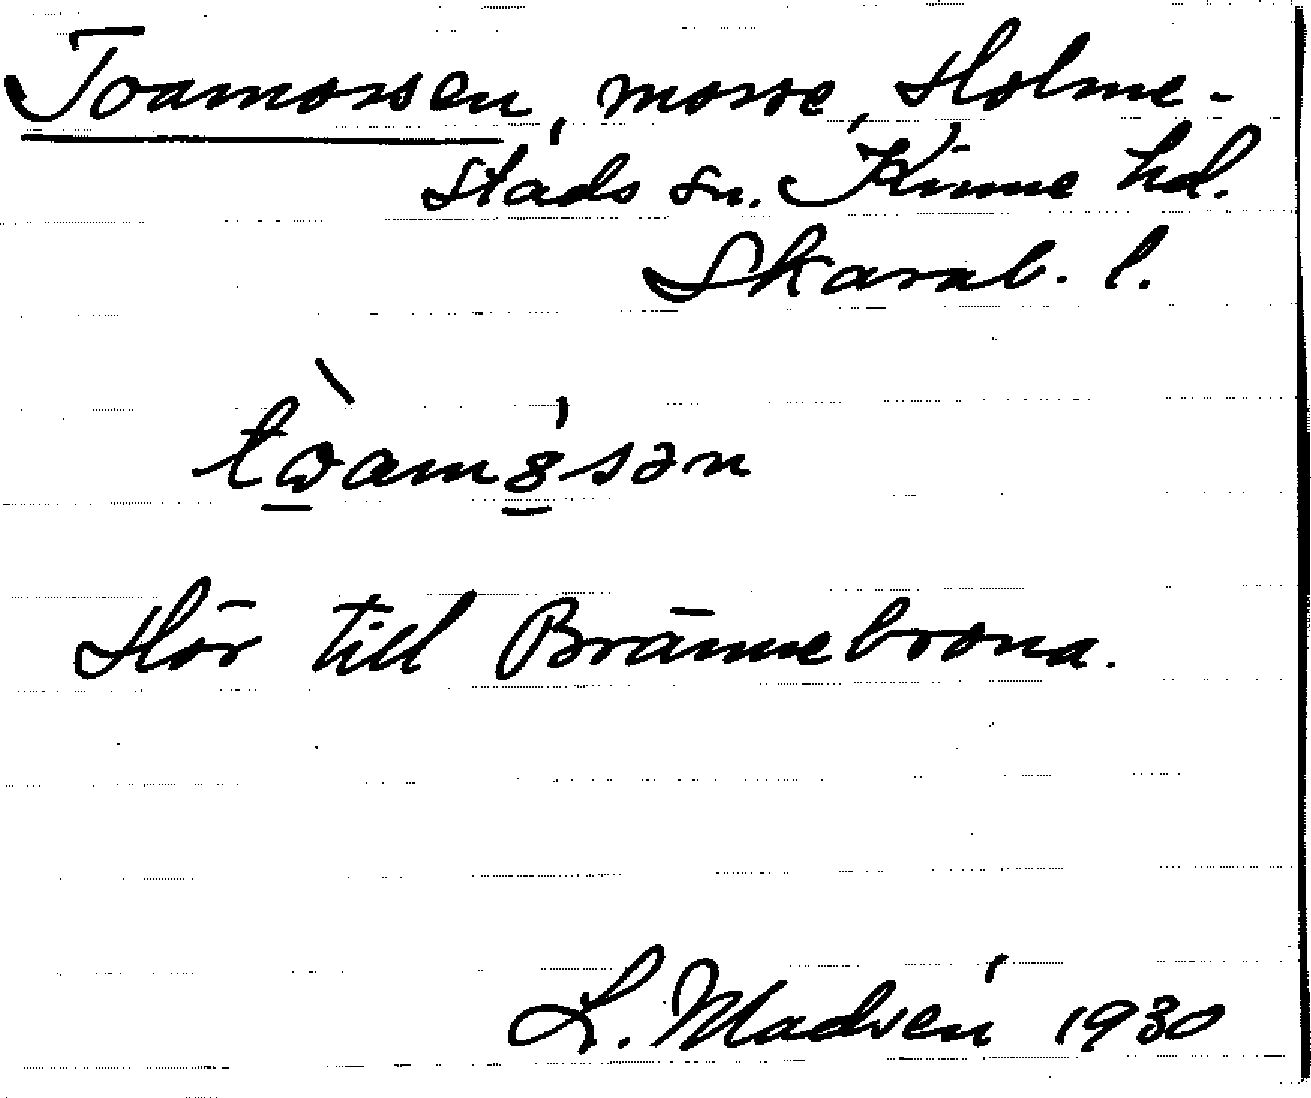 Toamossen, mosse, Holme-
stads sn. Kinne hd.
Skarab. l.
Hör till Brännebrona.
L. Madsén 1930